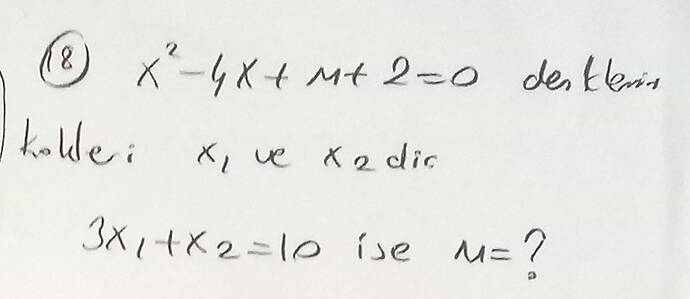 (18) x² - 4x + m + 2 = 0 denklemin
kökleri x₁ ve x₂ dir
3x₁ + x₂ = 10 ise m = ?